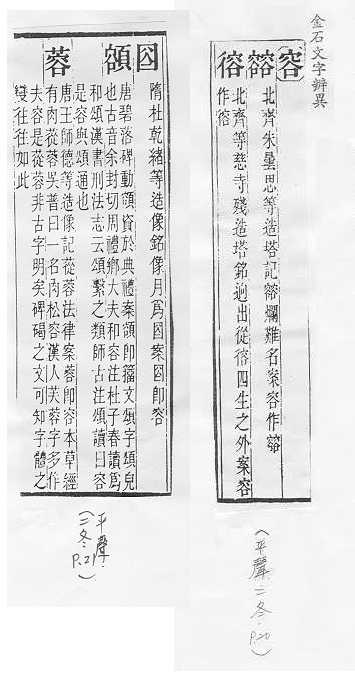 金石文字辨異
容
北齊朱曇思等造塔記爛難名案容作
北齊等慈寺殘造塔銘逈出從四生之外案容
作
(平聲二冬 P.20)
囙
隋杜乾緒等造像銘像月為囙案囙即容
𩔜
唐碧落碑動𩔜資於典禮案𩔜即籀文頌字頌皃
也古音余封切周禮鄉大夫和容注杜子春讀為
和頌漢書刑法志云頌繫之類師古注頌讀曰容
是容與頌通也
蓉
唐王師德等造像記蓯蓉法律案蓉即容本草經
有肉蓯蓉吳普曰一名肉松容漢人芙蓉字多作
夫容是蓯蓉非古字明矣碑碣之文可知字體之
變往往如此
(平聲 二冬 P.21)